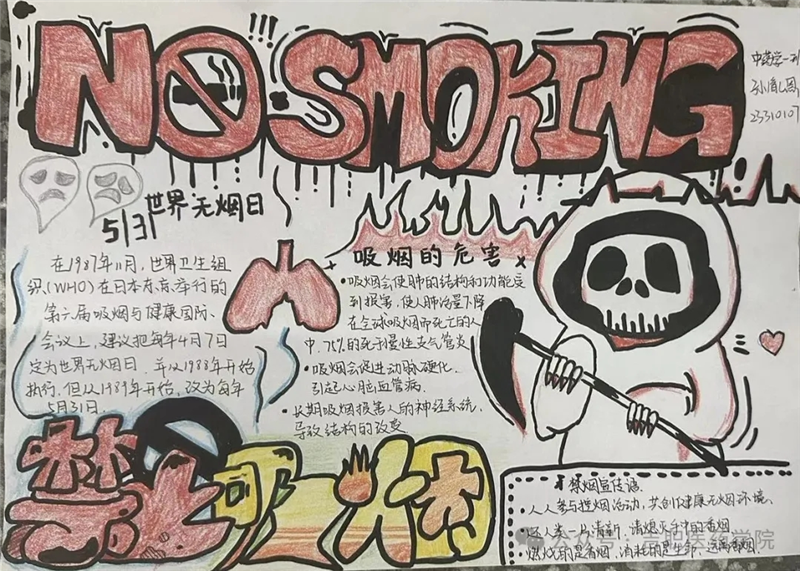 NO SMOKING
!!!
中药学一班
23310107
5/31 世界无烟日
在1987年11月，世界卫生组
织(WHO)在日本东京举行的
第六届吸烟与健康国际
会议上，建议把每年4月7日
定为世界无烟日，并从1988年开始
执行，但从1989年开始，改为每年
5月31日。
吸烟的危害
•吸烟会使肺的结构和功能受
到损害，使人肺活量下降
在全球吸烟而死亡的人
中，75%的死于慢性支气管炎
•吸烟会促进动脉硬化，
引起心脑血管病。
•长期吸烟损害人的神经系统，
导致结构的改变
禁吸烟
禁烟宣传语
•人人参与控烟活动，共创健康无烟环境、
•还人类一片清新，请熄灭手中的香烟
•燃烧的是香烟，消耗的是生命，远离香烟